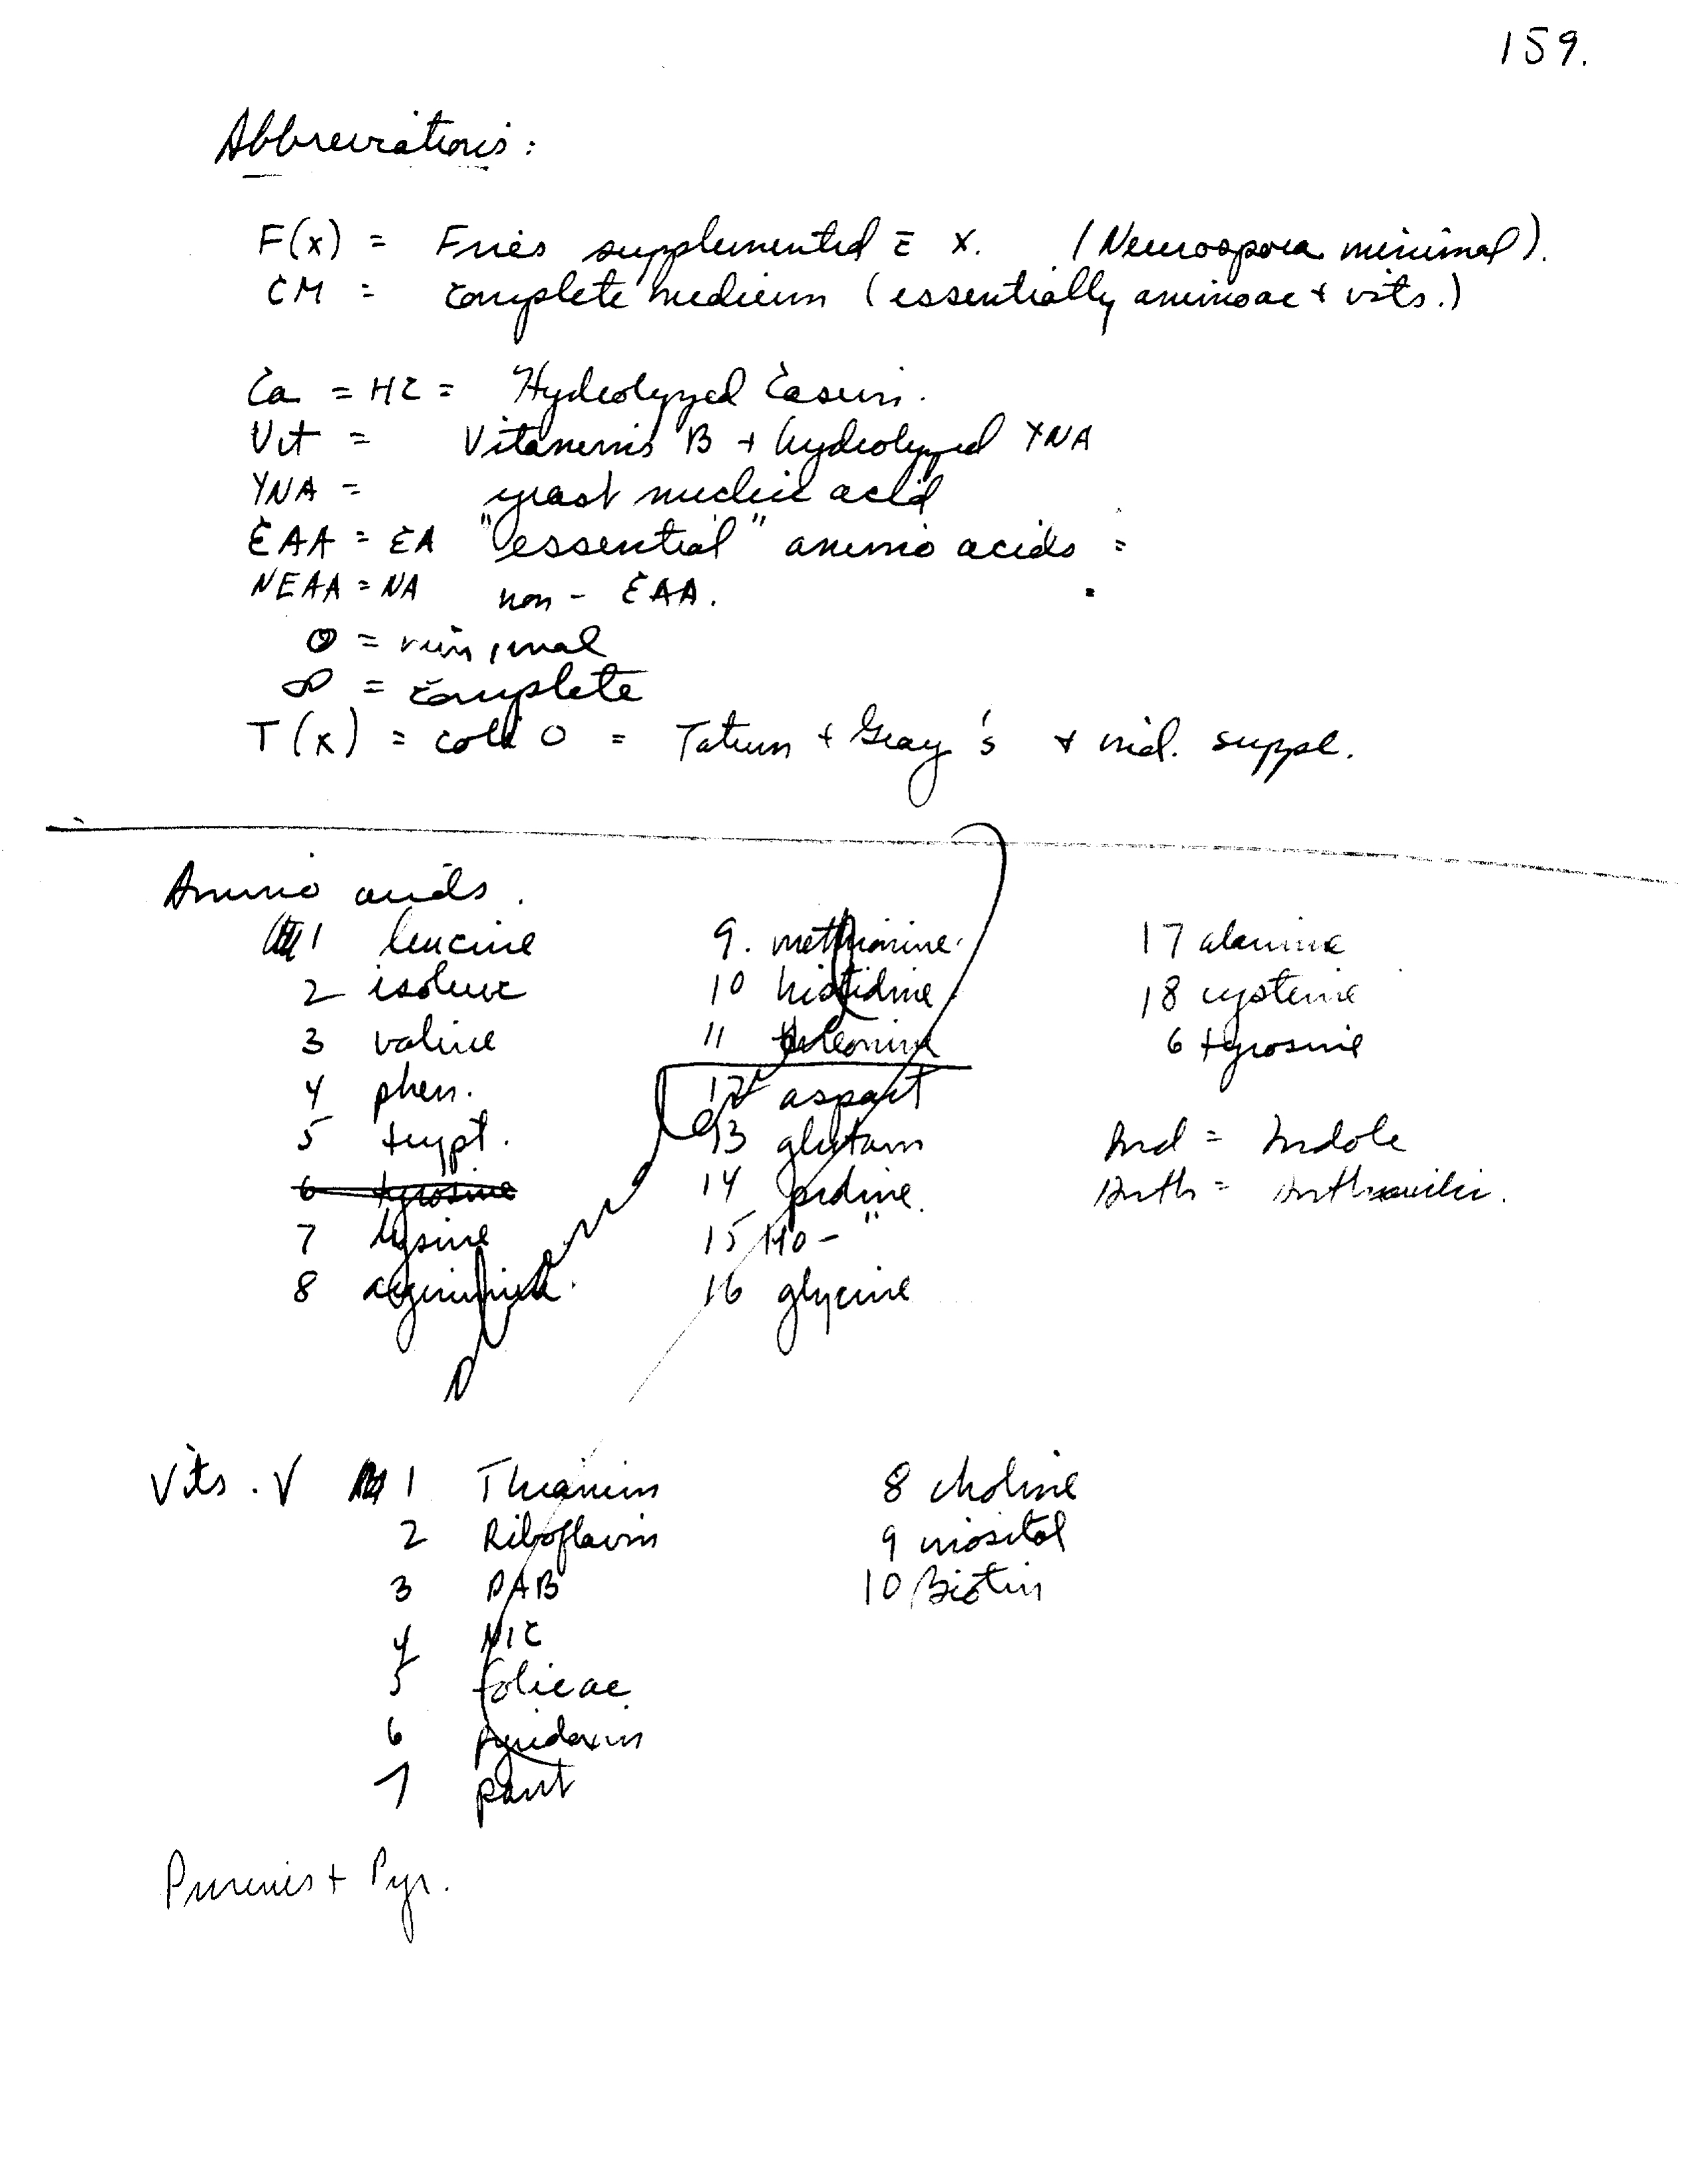 159.
Abbreviations:
F(x) = Fries supplemented c̄ x. (Neurospora minimal).
CM = complete medium (essentially aminoac + vits.)
Ca = HC = Hydrolyzed Casein.
Vit = Vitamins B + hydrolyzed YNA
YNA = yeast nucleic acid
EAA = EA "essential" amino acids =
NEAA = NA non-EAA.
0 = minimal
∞ = complete
T(x) = coli 0 = Tatum + Gray's + ind. suppl.
Amino acids.
1 leucine
2 isoleuc
3 valine
4 phen.
5 trypt.
6 tyrosine
7 lysine
8 arginine.
9. methionine.
10 histidine
11 threonine
12 aspart
13 glutam
14 proline.
15 HO- "
16 glycine
17 alanine
18 cysteine
6 tyrosine
Ind = Indole
Anth = Anthranilic.
Vits. V 1 Thiamin
2 Riboflavin
3 PAB
4 NIC
5 folicac.
6 pyridoxin
7 pant
8 choline
9 inositol
10 Biotin
Purines + Pyr.